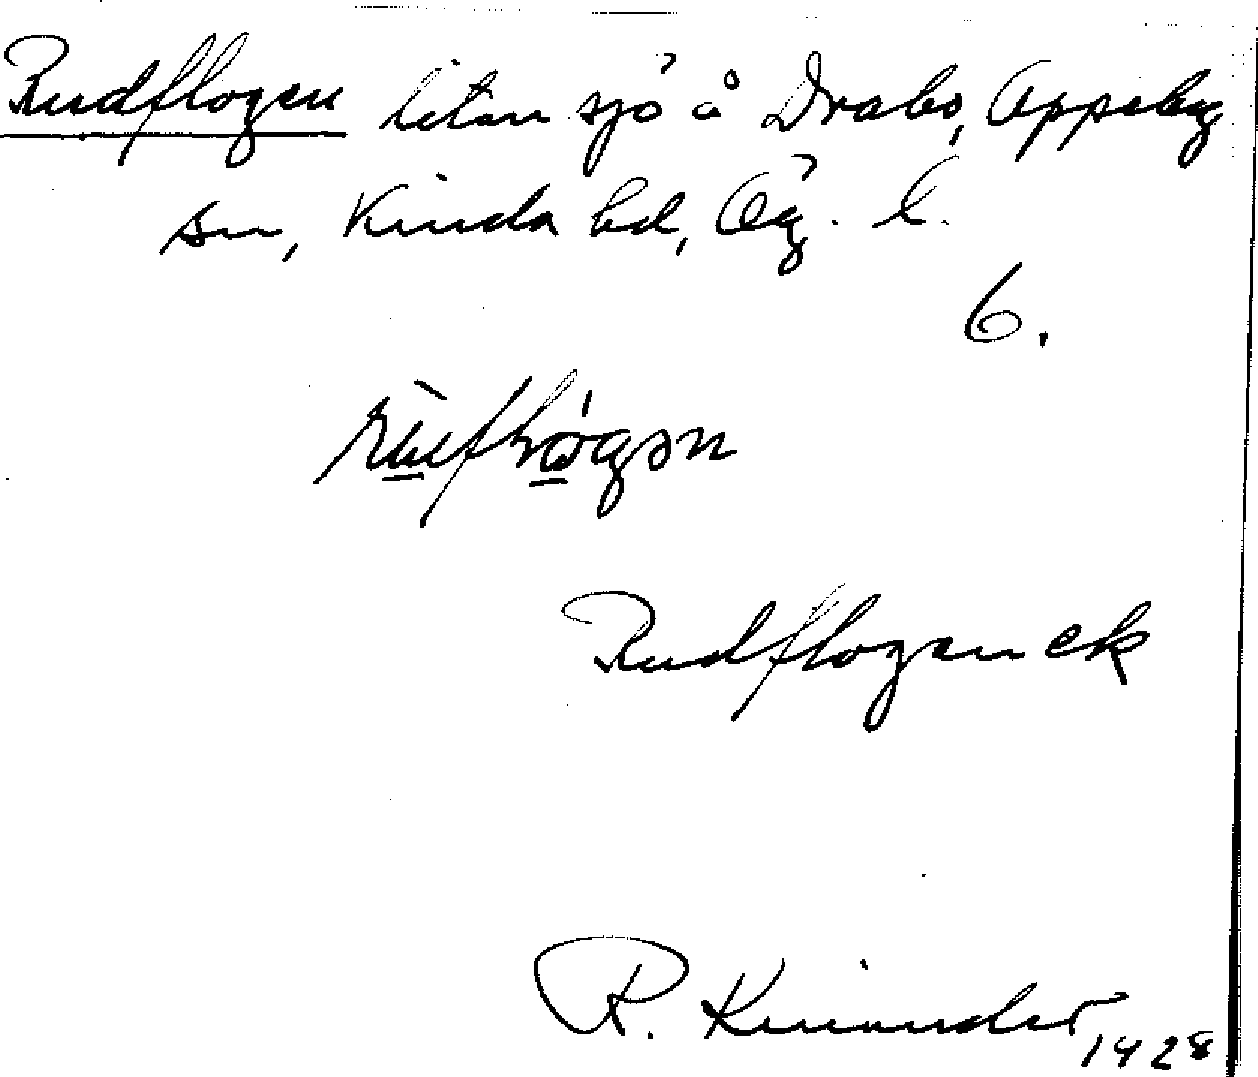 Rudflogen liten sjö å Drabo, Oppeby
sn, Kinda hd, Ög. l.
6.
Rudflogen ek
R. Kinander
1928